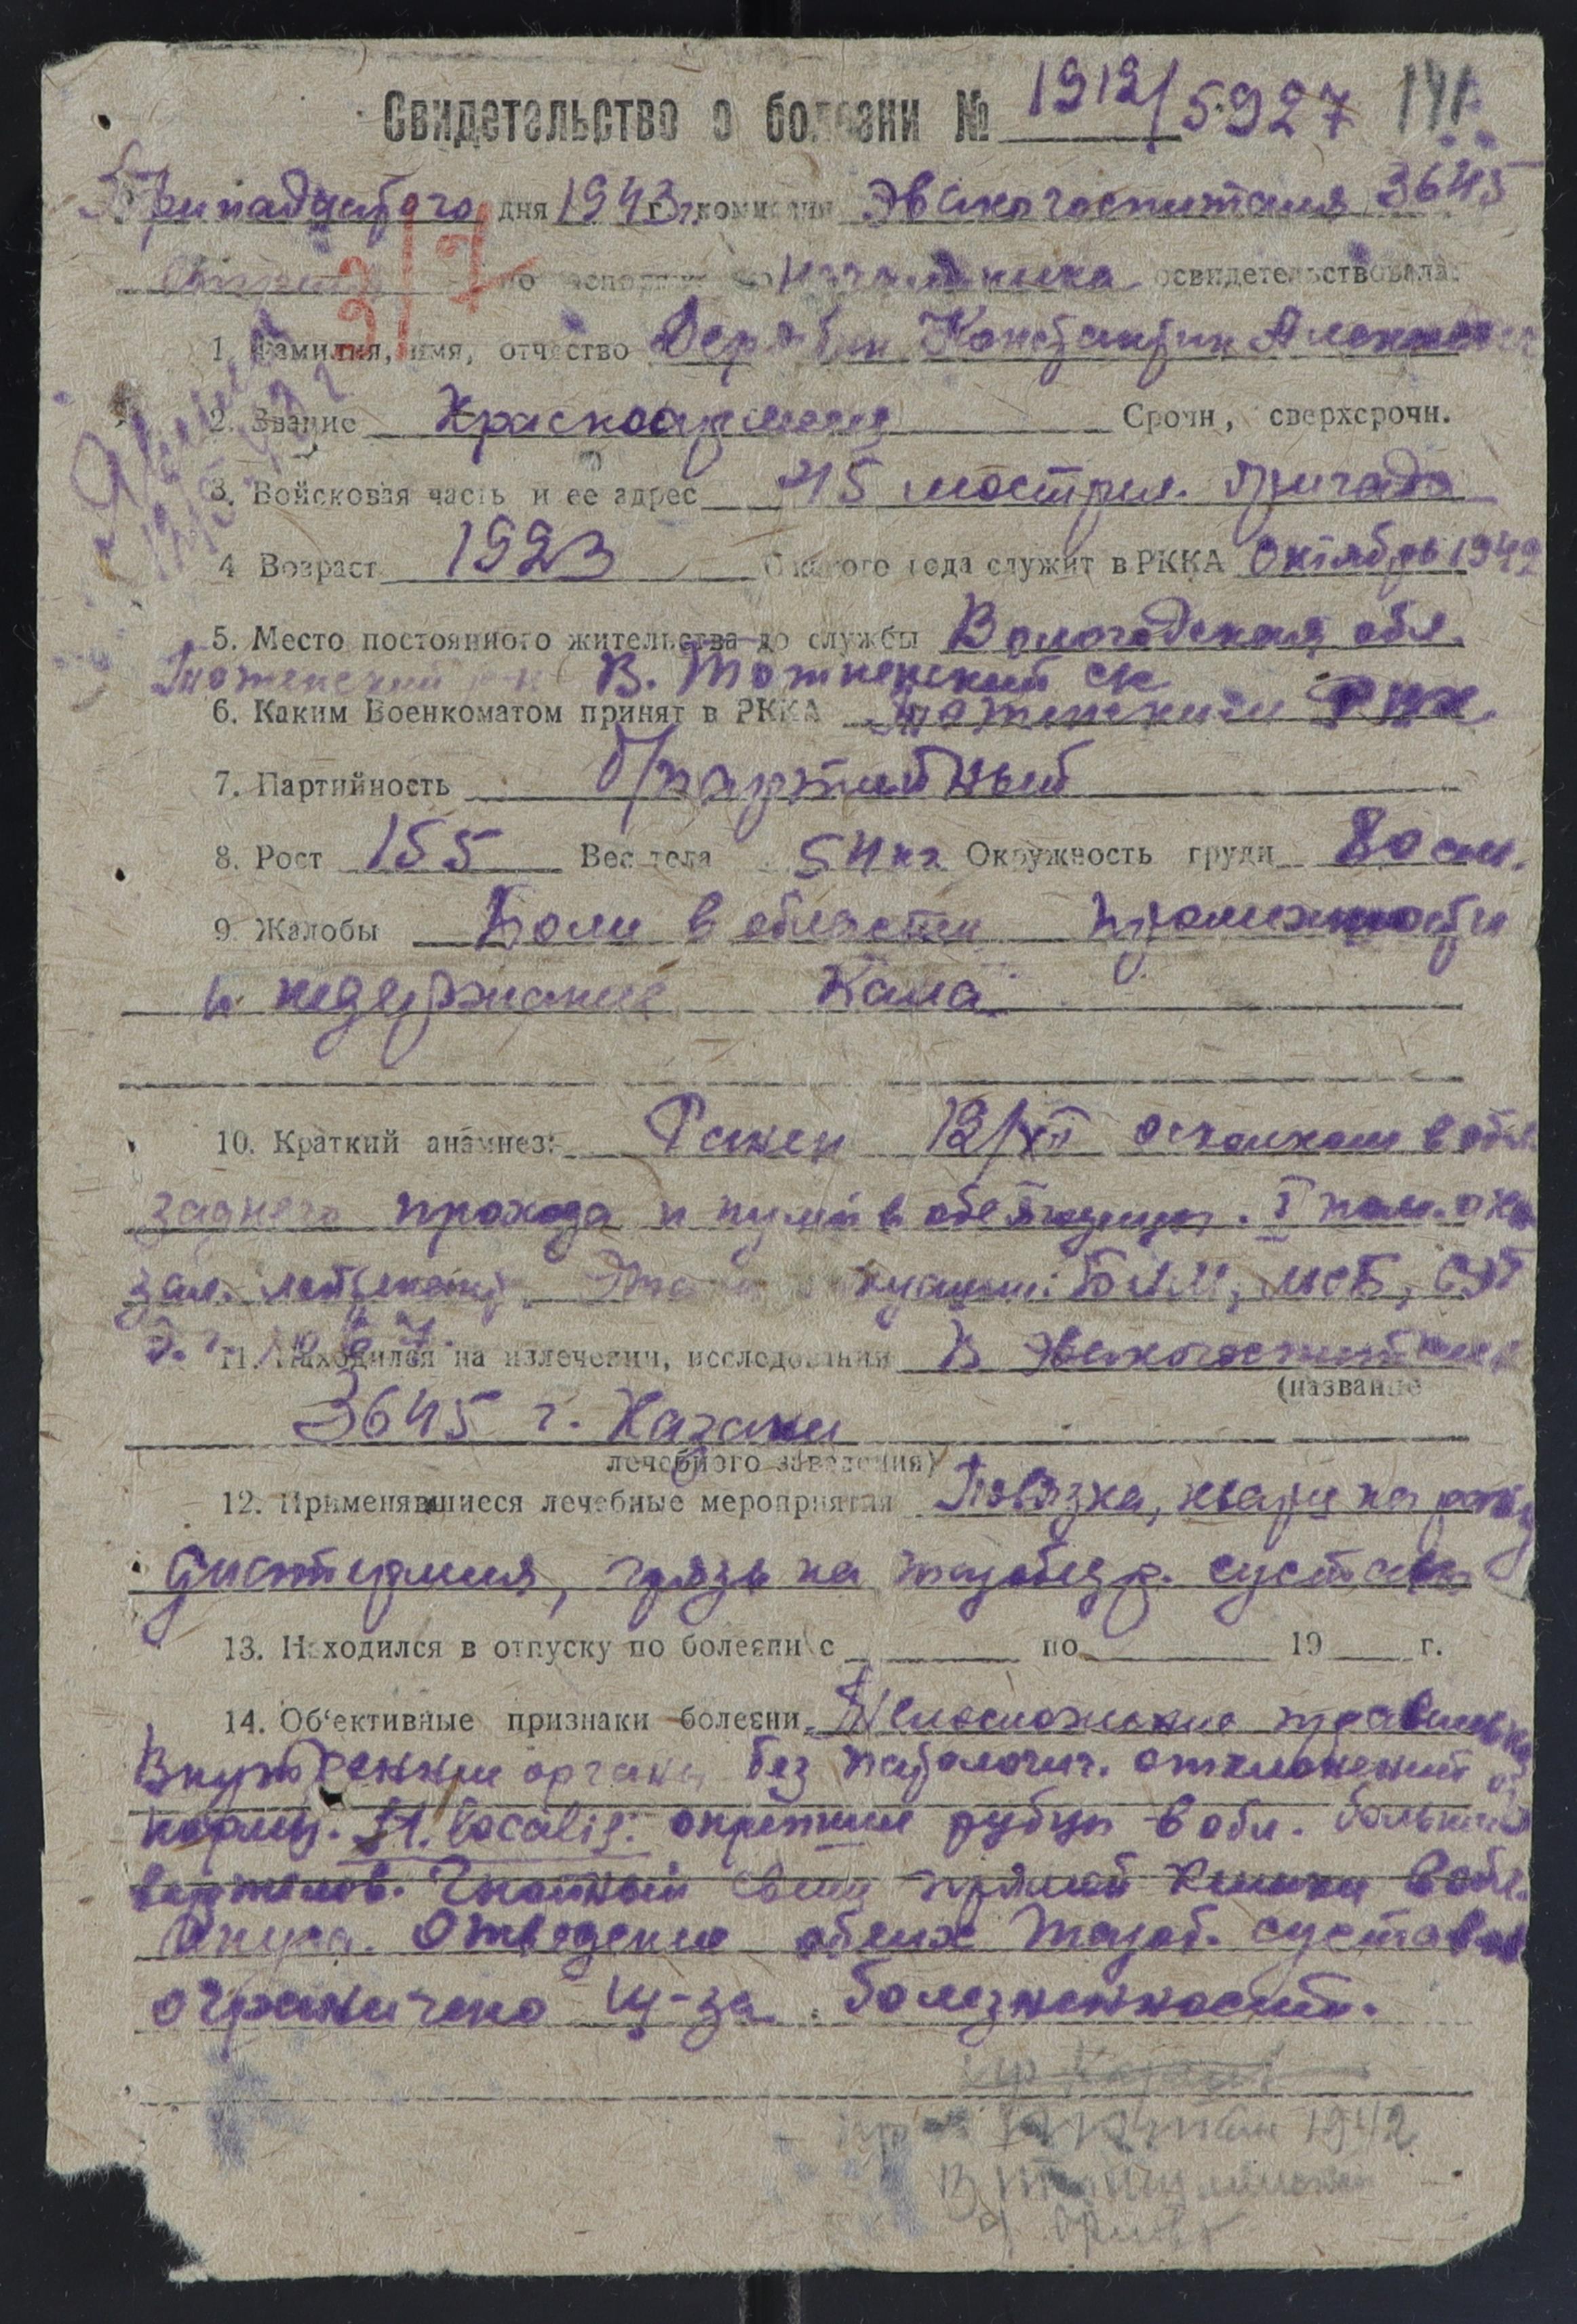 Свидетельство о болезни № 1912/5927
Тринадцатого дня 1943 г. комиссия Эвакогоспиталя 3645
по начальника освидетельствовала:
1. Фамилия, имя, отчество Дерябин Константин
2. Звание Красноармеец Срочн, сверхсрочн.
3. Войсковая часть и ее адрес 45 бригада
4 Возраст 1923 С какого года служит в РККА Октябрь 1942
5. Место постоянного жительства до службы Вологодская обл.
Тотемский р-н В. Тотемский с/с
6. Каким Военкоматом принят в РККА Тотемским РВК
7. Партийность б/партийный
8. Рост 155 Вес тела 54 кг Окружность груди 80 см.
9. Жалобы Боли в области промежности
и недержание кала
10. Краткий анамнез: Ранен 12/XII осколком в обл.
заднего прохода и пулей в обе ягодицы. I пом. ока
зал. БМП, МСБ, СЭГ
11. Находился на излечении, исследовании В Эвакогоспитале
(название
3645 г. Казани
лечебного заведения)
12. Применявшиеся лечебные мероприятия Повязка, кварц на рану
диатермия, грязь на тазобедр. суставы
13. Находился в отпуску по болезни с по 19 г.
14. Об'ективные признаки болезни Телосложение правильное
Внутренние органы без патологич. отклонений от
нормы. St. localis: окрепшие рубцы в обл. больших
вертелов. Гнойный свищ прямой кишки в обл.
Ануса. Отведение обеих тазоб. суставов
ограничено из-за болезненности.
1942